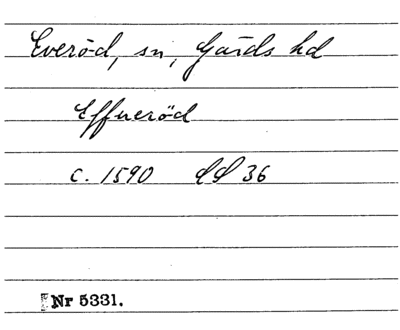 Everöd, sn, Gärds hd
Effueröd
c. 1590 36
Nr 5331.